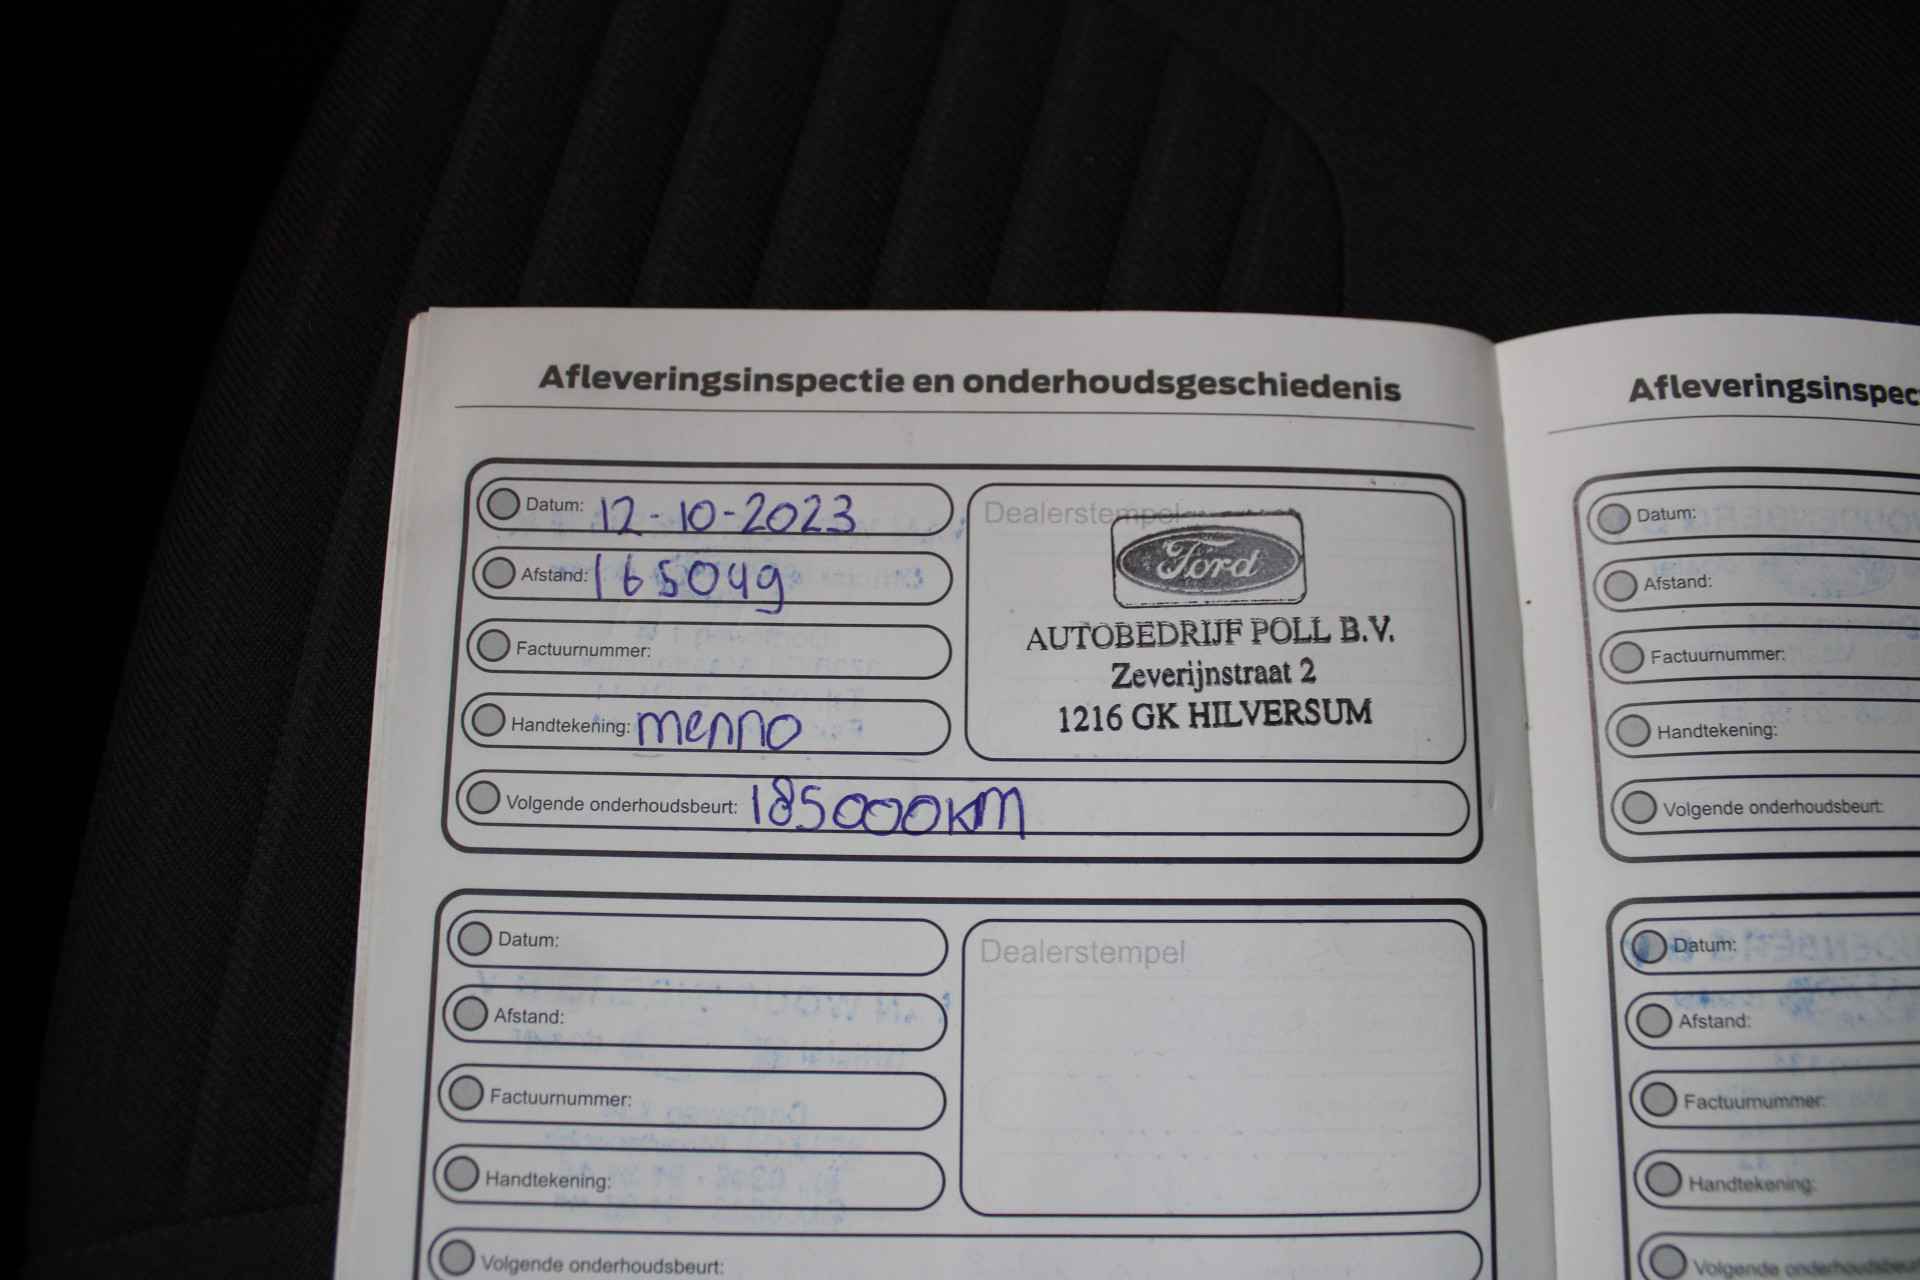 Afleveringsinspectie en onderhoudsgeschiedenis
Datum: 12-10-2023
Afstand: 165049
Factuurnummer:
Handtekening: menno
Volgende onderhoudsbeurt: 185000KM
Dealerstempel
Ford
AUTOBEDRIJF POLL B.V.
Zeverijnstraat 2
1216 GK HILVERSUM
Datum:
Afstand:
Factuurnummer:
Handtekening:
Volgende onderhoudsbeurt:
Dealerstempel
Afleveringsinspec
Datum:
Afstand:
Factuurnummer:
Handtekening:
Volgende onderhoudsbeurt:
Datum:
Afstand:
Factuurnummer:
Handtekening:
Volgende onderhoudsbeurt